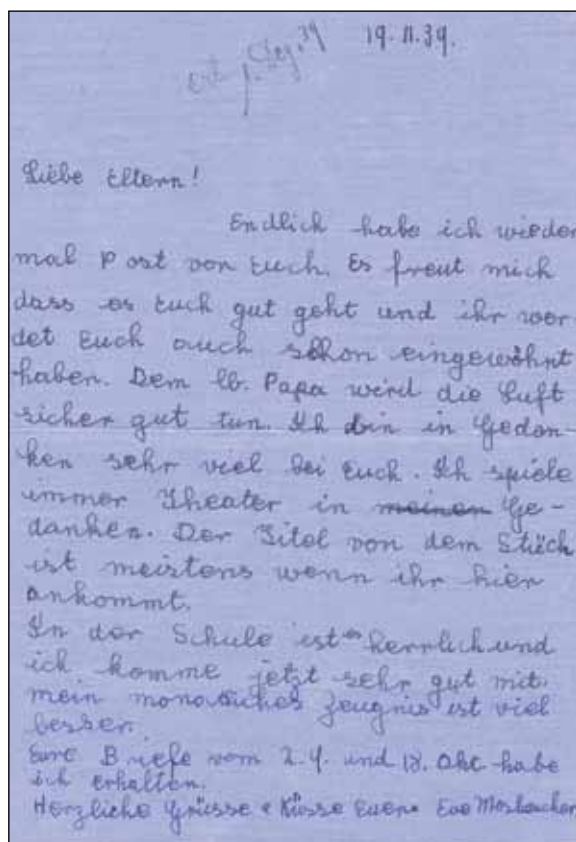 erh. 1. Dez. 39
19.11.39.
Liebe Eltern!
Endlich habe ich wieder
mal Post von Euch. Es freut mich
dass es Euch gut geht und ihr wer-
det Euch auch schon eingewöhnt
haben. Dem lb. Papa wird die Luft
sicher gut tun. Ich bin in Gedan-
ken sehr viel bei Euch. Ich spiele
immer Theater in meinen Ge-
danken. Der Titel von dem Stück
ist meistens wenn ihr hier
ankommt.
In der Schule ist es herrlich und
ich komme jetzt sehr gut mit.
mein monatliches Zeugnis ist viel
besser.
Eure Briefe vom 2. 4. und 18. Okt habe
ich erhalten.
Herzliche Grüsse & Küsse Euere Eva Mosbacher